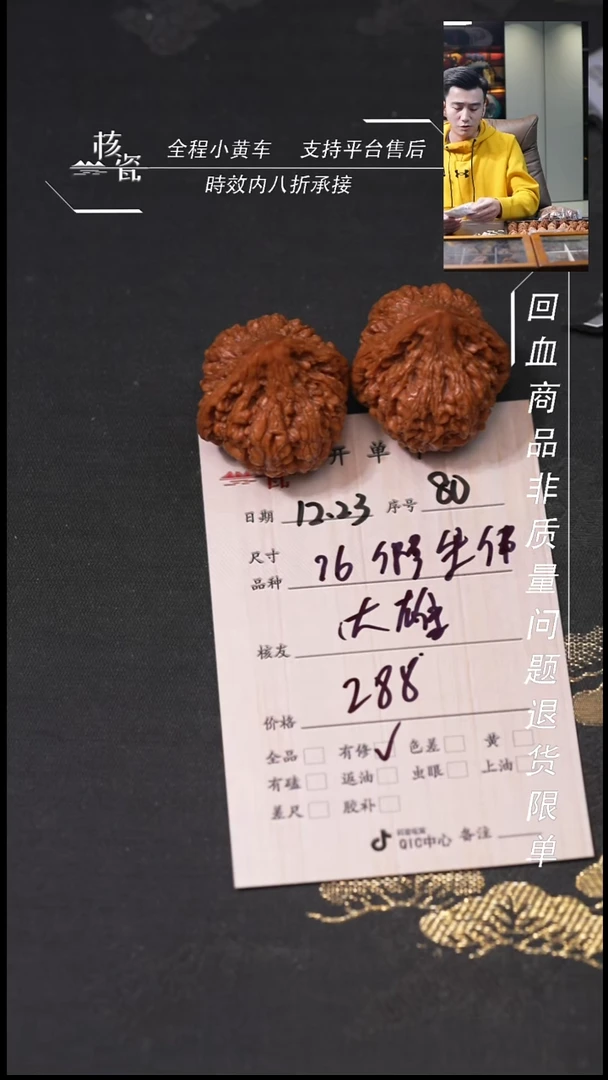 核瓷
全程小黄车 支持平台售后
時效内八折承接
回血商品非质量问题退货限单
开单
日期 12.23 序号 80
尺寸
品种 76
核友 大雄
价格 288
全品 有修 ✓ 色差 黄
有磕 返油 虫眼 上油
差尺 胶补
QIC中心 备注